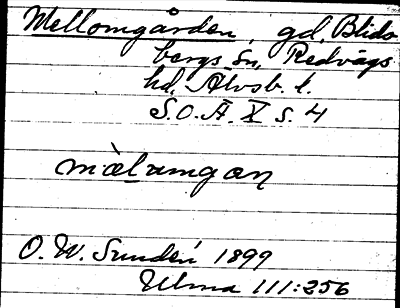 Mellomgården, gd, Blids
bergs sn, Redvägs
hd, Älvsb. l.
S.O.Ä. X s. 4
mälumgan
O. W. Sundén 1899
Ulma 111:256